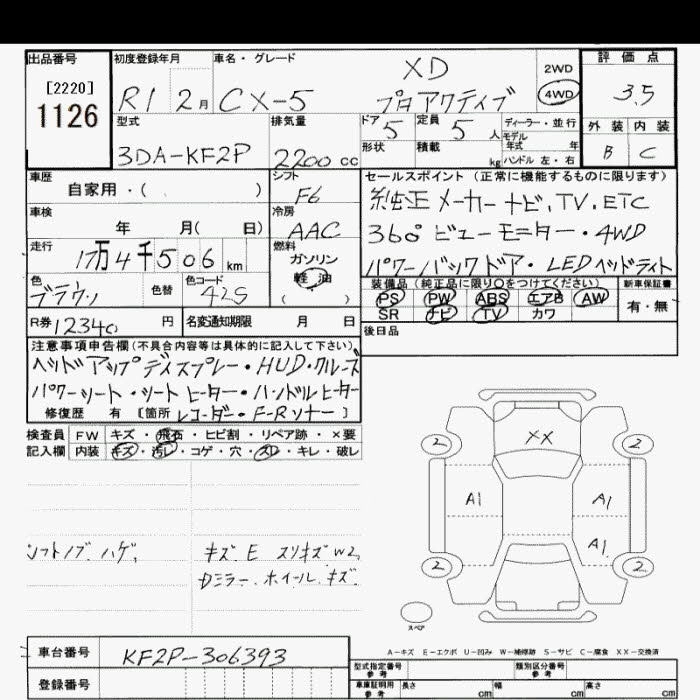 出品番号
[2220]
1126
初度登録年月
R1 2月
車名・グレード
CX-5
XD
プロアクティブ
2WD
4WD
評価点
3.5
外装 内装
B C
型式
3DA-KF2P
排気量
2200 cc
ドア
5
定員
5 人
ディーラー・並行
モデル
年式 年
形状
積載
kg
ハンドル 左・右
車歴
自家用・( )
シフト
F6
車検
年 月( 日)
冷房
AAC
走行
17万4千506 km
燃料
ガソリン
軽油
( )
色
ブラウン
色替
色コード
42S
R券 12340 円
名変通知期限 月 日
セールスポイント(正常に機能するものに限ります)
純正メーカーナビ、TV、ETC
360°ビューモニター・4WD
パワーバックドア・LEDヘッドライト
装備品(純正品に限り○をつけてください)
PS PW ABS エアB AW
SR ナビ TV カワ
新車保証書
有・無
後日品
注意事項申告欄(不具合内容等は具体的に記入して下さい)
ヘッドアップディスプレー・HUD・クルーズ
パワーシート・シートヒーター・ハンドルヒーター
修復歴 有 [箇所 レコーダー・F-Rソナー]
検査員 FW キズ・飛石・ヒビ割・リペア跡・×要
記入欄 内装 キズ・汚レ・コゲ・穴・スレ・キレ・破レ
シフトノブ ハゲ、
キズ E スリキズ W2、
Dミラー、ホイール、キズ
XX
2 2
A1 A1
A1
2 2
スペア
A－キズ E－エクボ U－凹み W－補修跡 S－サビ C－腐食 XX－交換済
車台番号 KF2P-306393
登録番号
型式指定番号
参考
類別区分番号
参考
車庫証明用
参考
長さ cm 幅 cm 高さ cm